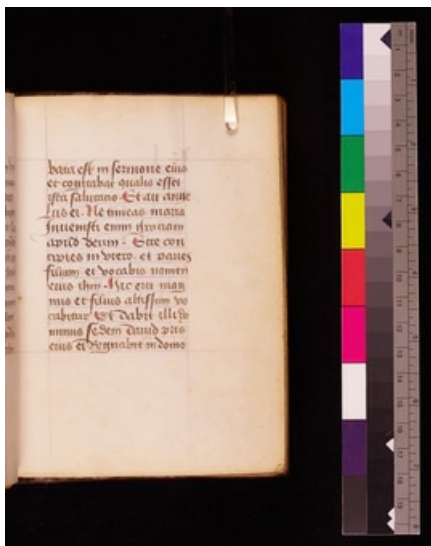 bata est in sermone eius
et cogitabat qualis esset
ista salutatio. Et ait ange
lus ei. Ne timeas maria
Invenisti enim gratiam
apud deum. Ecce con
cipies in utero. et paries
filium. et vocabis nomen
eius ihm. Hic erit mag
nus et filius altissimi vo
cabitur. Et dabit illi do
minus sedem david pris
eius et Regnabit in domo